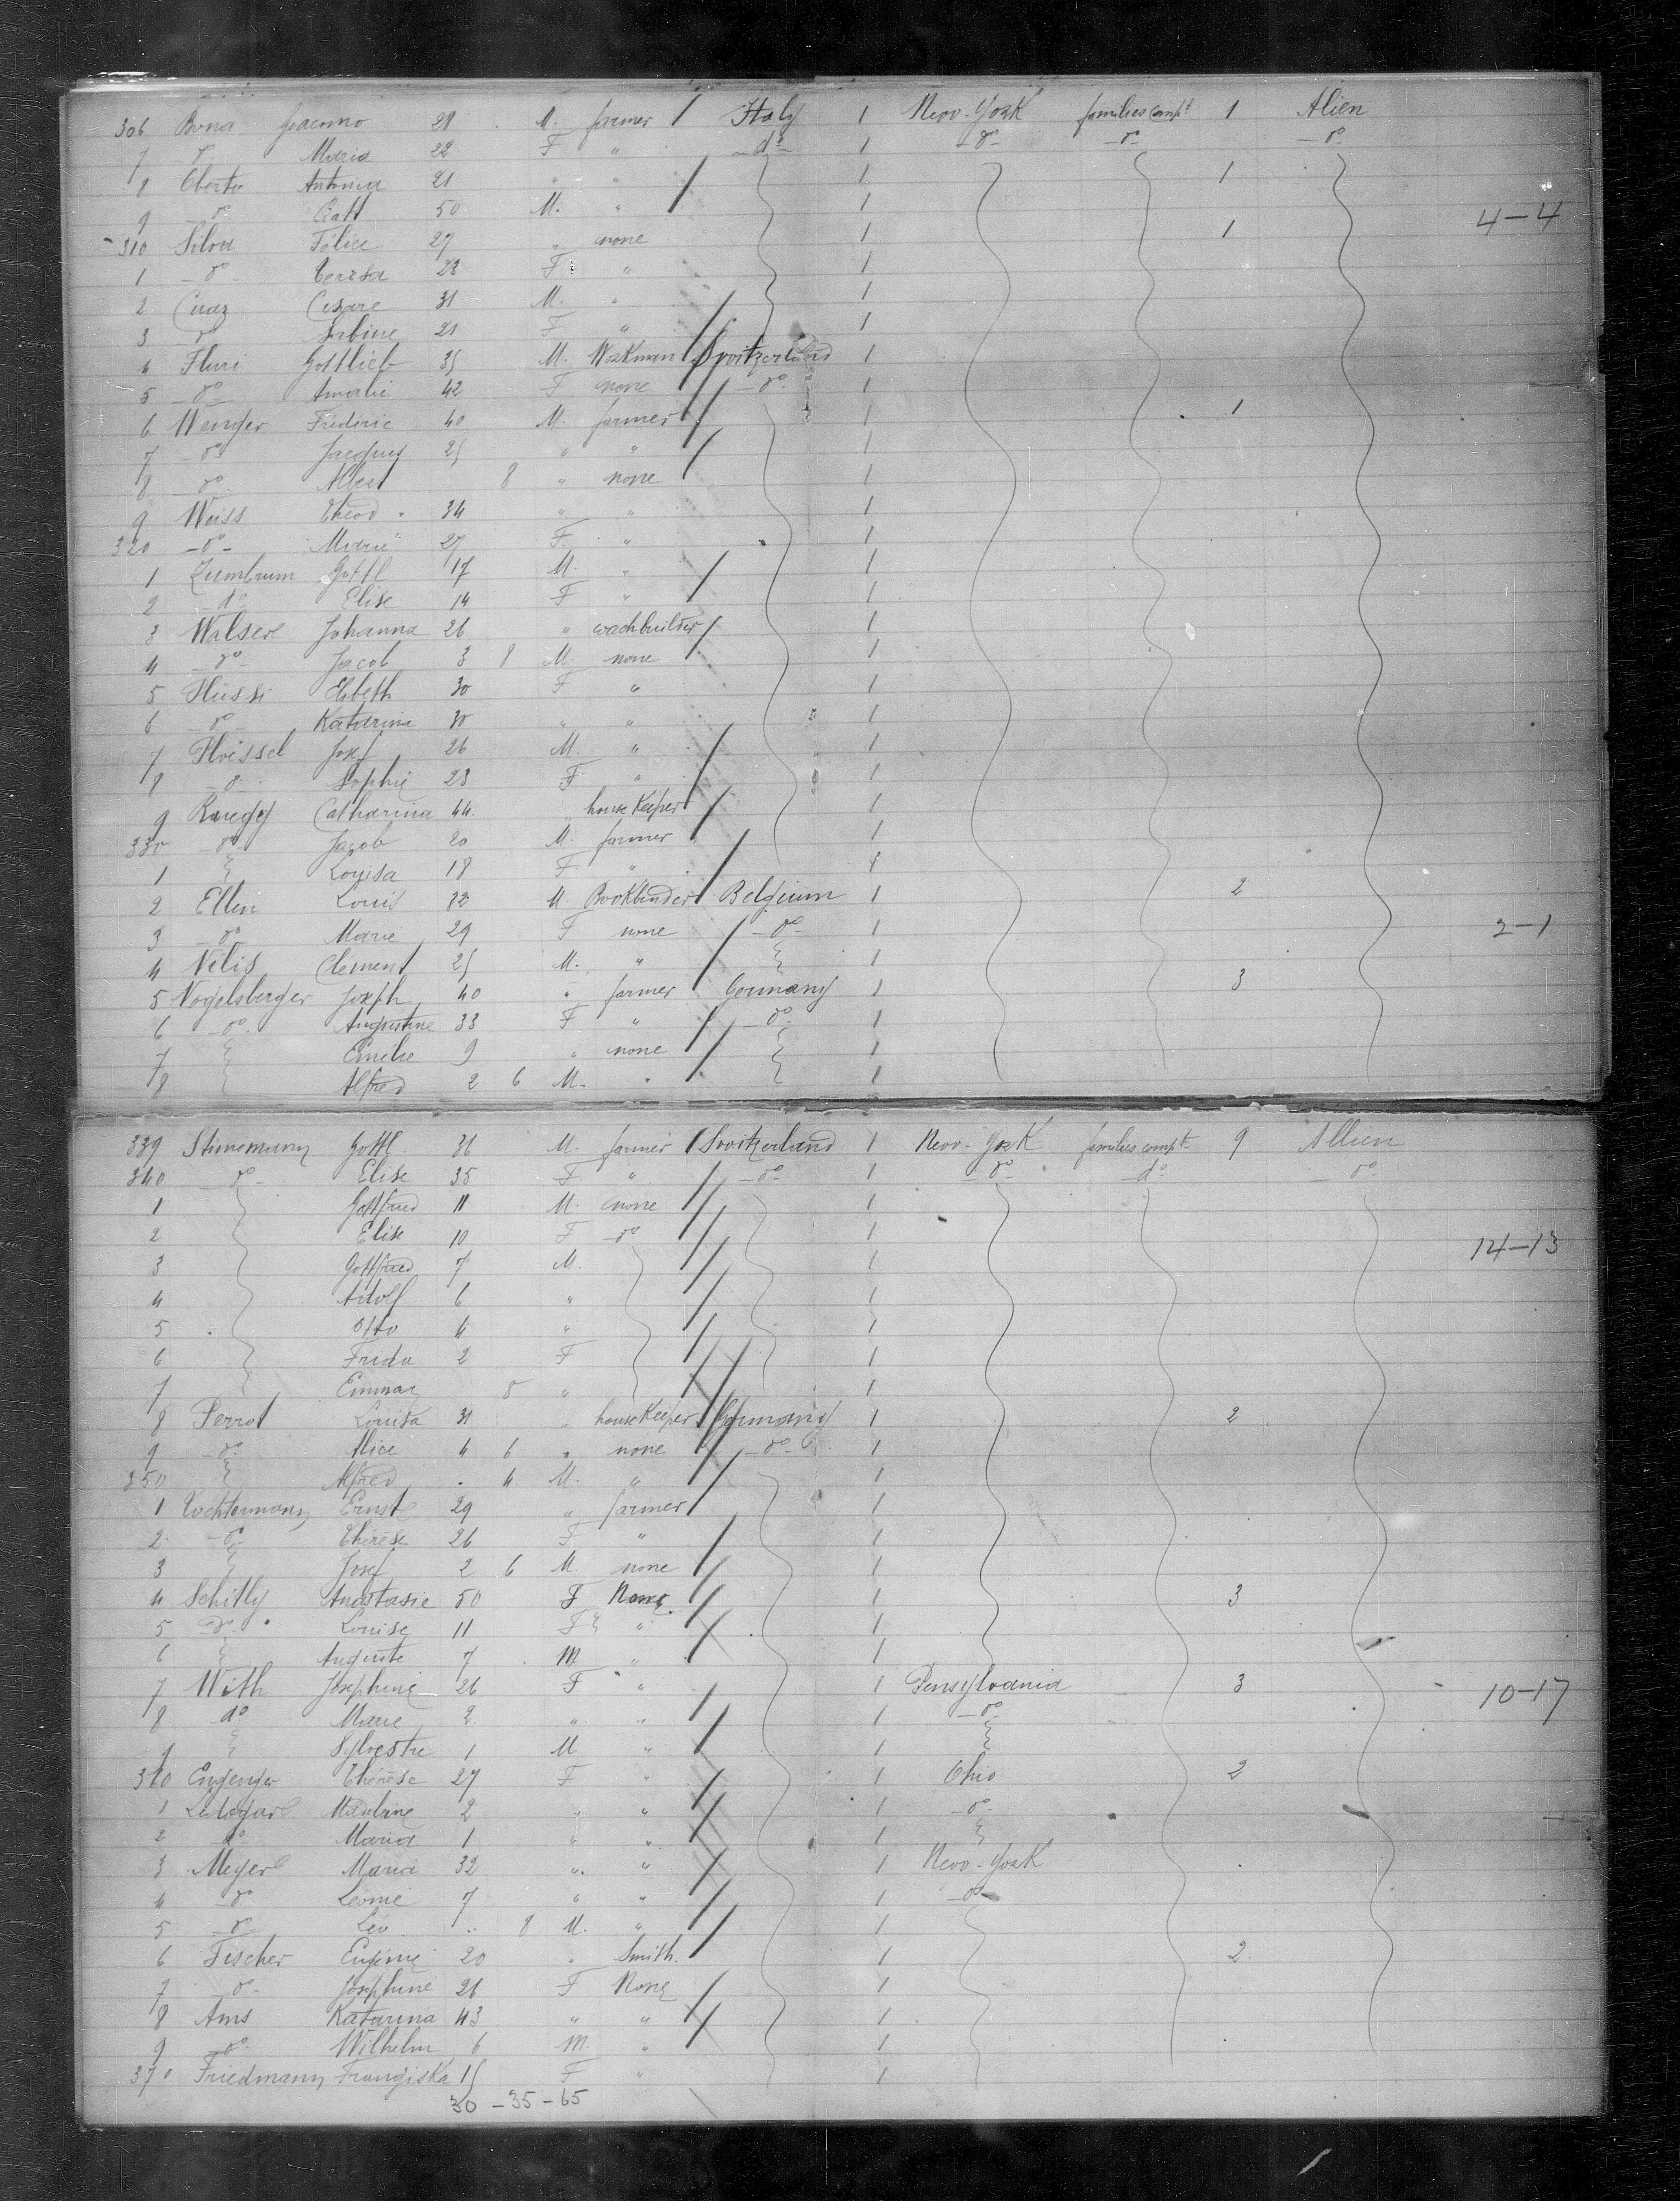 306 Bona Giacomo 28 M. farmer Italy 1 New-York families compt 1 Alien
7 do Maria 22 F " do 1 do do do
8 Oberto Antonia 21 " " 1 1
9 do 50 M. " 1 4-4
310 Silva Félice 27 " none 1 1
1 do Teresa 23 F " 1
2 Cuaz Cesare 31 M. " 1
3 do Sabine 21 F " 1
4 Fluri Gottlieb 35 M. Workman Switzerland 1
5 do Amalie 42 F none do 1
6 Wenger Frédéric 40 M. farmer 1 1
7 do Jacques 25 " " 1
8 do Albert 8 " none 1
9 Weiss Théod. 34 " " 1
320 do Marie 27 F " 1
1 Zumbrum Gottl 17 M. " 1
2 do Elise 14 F " 1
3 Walser Johanna 26 " 1
4 do Jacob 3 8 M none 1
5 Hüssi Elsbeth 30 F " 1
6 do Katarina 30 " " 1
7 Floissel Josef 26 M. " 1
8 do Sophie 23 F " 1
9 Ruegg Catharina 44 " house Keeper 1
330 do Jacob 20 M. farmer 1
1 Louisa 18 F " 1
2 Ellen Louis 32 M Bookbinder Belgium 1 2
3 do Marie 29 F none do 1 2-1
4 Nélis Clement 25 M. " 1
5 Vogelsberger Joseph 40 " farmer Germany 1 3
6 do Augustine 33 F " do 1
7 Emelie 9 " none 1
8 Alfred 2 6 M. " 1
339 Stunemann Gottl. 36 M. farmer Switzerland 1 New-York families compt 9 Allien
340 do Elise 35 F " do 1 do do do
1 Gottfried 11 M. none 1
2 Elise 10 F do 1
3 Gottfried 7 M. 1 14-13
4 Adolf 6 " 1
5 Otto 4 " 1
6 Frida 2 F 1
7 Emma " 1
8 Perrot Louisa 31 " house Keeper Germany 1 2
9 do Alice 4 6 " none do 1
350 Alfred 4 M. " 1
1 Ernst 29 " farmer 1
2 do Thérèse 26 F " 1
3 Josef 2 6 M. none 1
4 Schilly Anastasie 50 F None 1 3
5 do Louise 11 F " 1
6 Auguste 7 M " 1
7 With Josephine 26 F " 1 Pensylvania 3 10-17
8 do Marie 2 " " 1 do
9 Sylvestre 1 M " 1
360 Thérèse 27 F " 1 Ohio 2
1 Madeline 2 " " 1 do
2 do Maria 1 " " 1
3 Meyer Maria 32 " " 1 New-York
4 do Léonie 7 " " 1 do
5 do Léo 8 M. " 1
6 Fischer Eugénie 20 " Smith. 1 2
7 do Josephine 21 F None 1
8 Ams Katarina 43 " " 1
9 do Wilhelm 6 M. " 1
370 Friedmann Franziska 15 F " 1
30 - 35 - 65